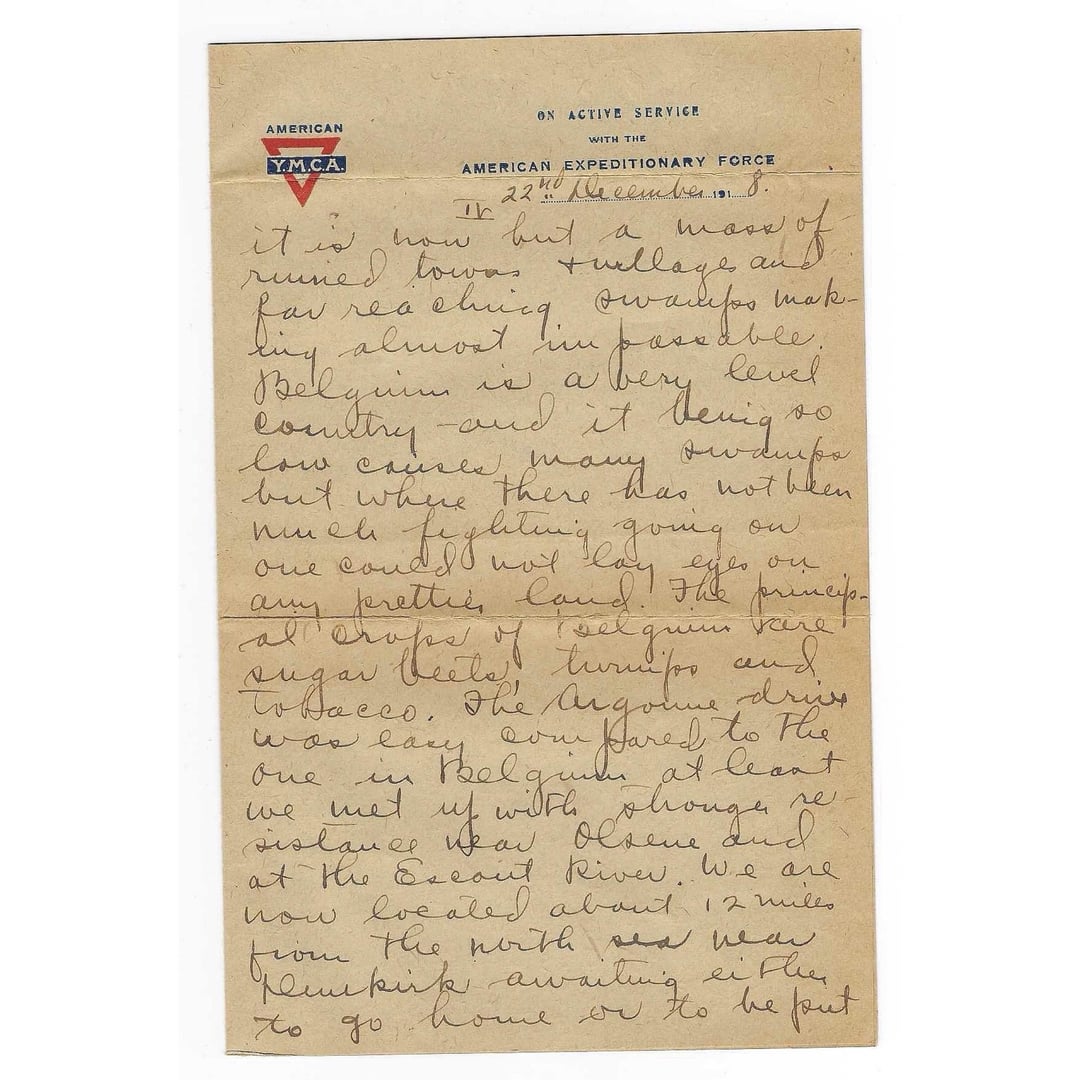 AMERICAN
Y.M.C.A.
ON ACTIVE SERVICE
WITH THE
AMERICAN EXPEDITIONARY FORCE
22nd December 1918.
IV
it is now but a mass of
ruined towns + villages and
far reaching swamps mak-
ing almost impassable.
Belgium is a very level
country - and it being so
low causes many swamps
but where there has not been
much fighting going on
one could not lay eyes on
any prettier land. The princip-
al crops of Belgium are
sugar beets, turnips and
tobacco. The Argonne drive
was easy compared to the
one in Belgium at least
we met up with stronger re-
sistance near Olsene and
at the Escaut River. We are
now located about 12 miles
from the north sea near
Dunkirk awaiting either
to go home or to be put